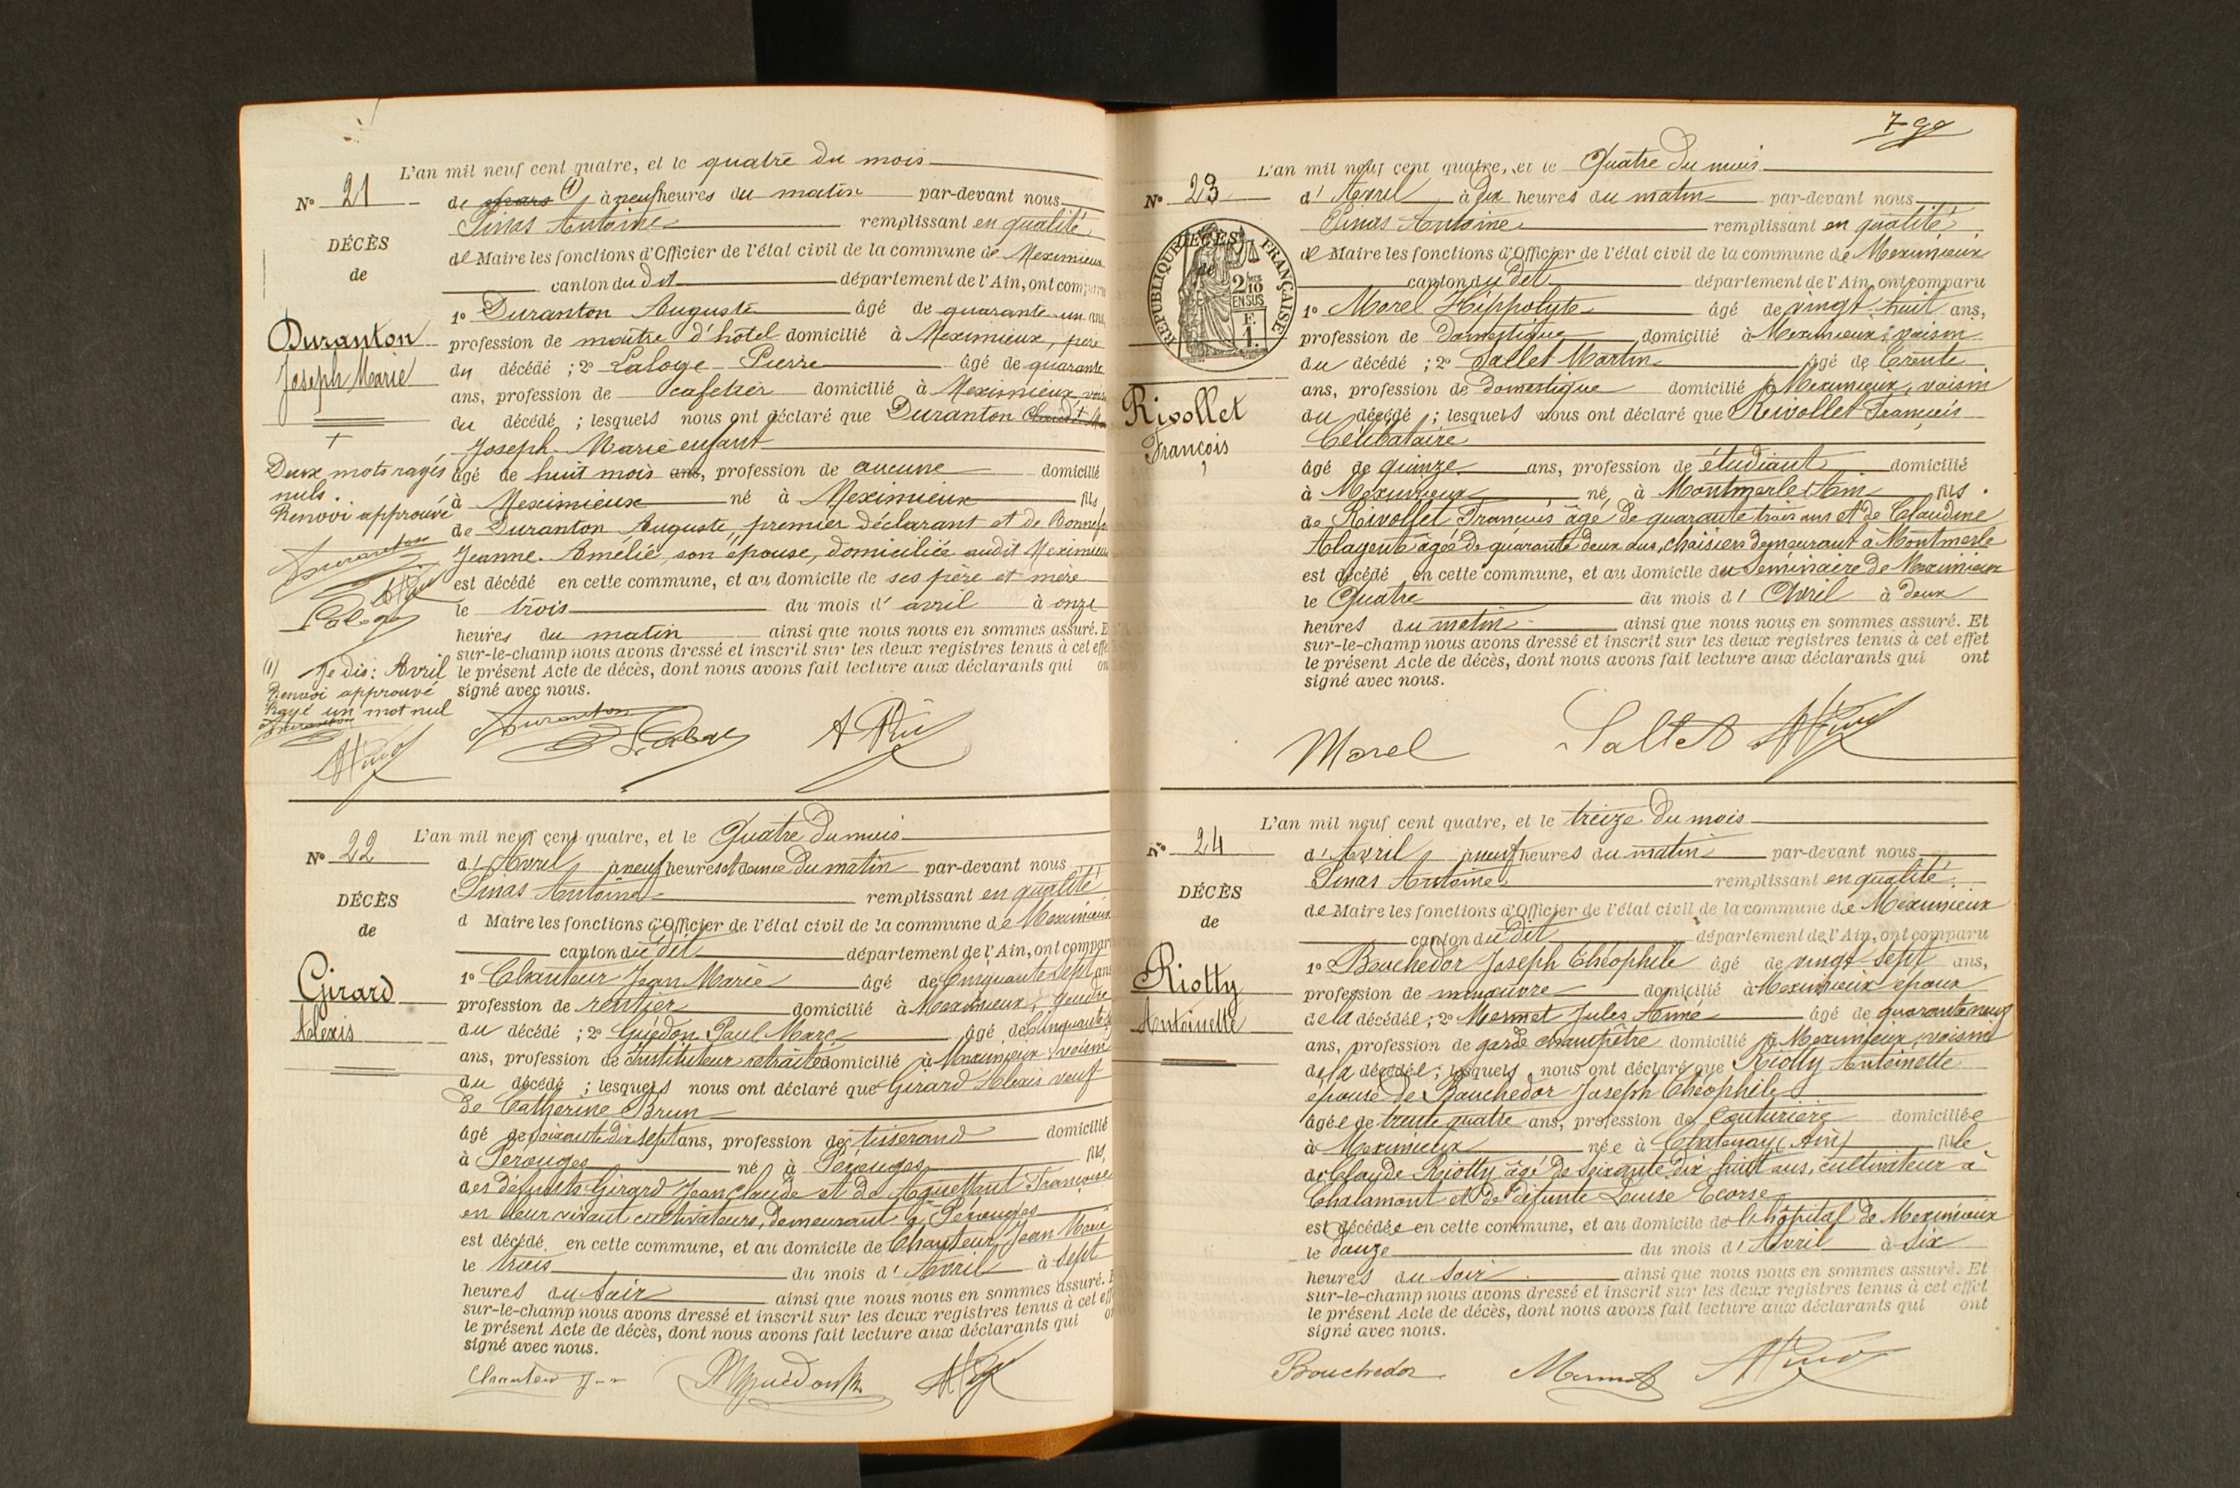 L'an mil neuf cent quatre, et le quatre du mois
N° 21
de mars (1) à neuf heures du matin par-devant nous
Pinas Antoine remplissant en qualité
DÉCÈS
de Maire les fonctions d'Officier de l'état civil de la commune de Meximieux
de
canton du dit département de l'Ain, ont comparu
1° Duranton Auguste âgé de quarante un ans
Duranton
profession de maître d'hôtel domicilié à Meximieux, père
Joseph Marie
du décédé ; 2° Laloge Pierre âgé de quarante
ans, profession de cafetier domicilié à Meximieux, voisin
du décédé ; lesquels nous ont déclaré que Duranton
Joseph Marie enfant
Deux mots rayés
nuls.
Renvoi approuvé
âgé de huit mois ans, profession de aucune domicilié
à Meximieux né à Meximieux fils
de Duranton Auguste, premier déclarant et de
Jeanne Amélie, son épouse, domiciliée audit Meximieux
est décédé en cette commune, et au domicile de ses père et mère
le trois du mois d'avril à onze
heures du matin ainsi que nous nous en sommes assuré. Et
sur-le-champ nous avons dressé et inscrit sur les deux registres tenus à cet effet
le présent Acte de décès, dont nous avons fait lecture aux déclarants qui ont
signé avec nous.
(1) Je dis : Avril
Renvoi approuvé
Rayé un mot nul
Duranton
L'an mil neuf cent quatre, et le Quatre du mois
N° 22
d'Avril à neuf heures et demie du matin par-devant nous
Pinas Antoine remplissant en qualité
DÉCÈS
d Maire les fonctions d'Officier de l'état civil de la commune de Meximieux
de
canton du dit département de l'Ain, ont comparu
1° Chanteur Jean Marie âgé de Cinquante sept ans
Girard
profession de rentier domicilié à Meximieux, gendre
Alexis
du décédé ; 2° Guédon Paul Marc âgé de Cinquante
ans, profession de Instituteur retraité domicilié à Meximieux, voisin
du décédé ; lesquels nous ont déclaré que Girard Alexis veuf
de Catherine Brun
âgé de soixante dix sept ans, profession de tisserand domicilié
à Pérouges né à Pérouges fils
des défunts Girard Jean Claude et de Françoise
en leur vivant cultivateurs, demeurant à Pérouges
est décédé en cette commune, et au domicile de Chanteur Jean Marie
le trois du mois d'Avril à sept
heures du soir ainsi que nous nous en sommes assuré. Et
sur-le-champ nous avons dressé et inscrit sur les deux registres tenus à cet effet
le présent Acte de décès, dont nous avons fait lecture aux déclarants qui ont
signé avec nous.
L'an mil neuf cent quatre, et le Quatre du mois
N° 23
d'Avril à Dix heures du matin par-devant nous
Pinas Antoine remplissant en qualité
DÉCÈS
de Maire les fonctions d'Officier de l'état civil de la commune de Meximieux
de
RÉPUBLIQUE FRANÇAISE
2/10 EN SUS
canton du dit département de l'Ain, ont comparu
1° Morel Hippolyte âgé de vingt huit ans,
profession de Domestique domicilié à Meximieux, voisin
du décédé ; 2° Sallet Martin âgé de Trente
ans, profession de domestique domicilié à Meximieux, voisin
Rivollet
François
du décédé ; lesquels nous ont déclaré que Rivollet François
Célibataire
âgé de quinze ans, profession de étudiant domicilié
à Meximieux né à Montmerle (Ain) fils
de Rivollet François âgé de quarante trois ans et de Claudine
Alagente âgée de quarante deux ans, chaisiers demeurant à Montmerle
est décédé en cette commune, et au domicile du Séminaire de Meximieux
le Quatre du mois d'Avril à deux
heures du matin ainsi que nous nous en sommes assuré. Et
sur-le-champ nous avons dressé et inscrit sur les deux registres tenus à cet effet
le présent Acte de décès, dont nous avons fait lecture aux déclarants qui ont
signé avec nous.
Morel Saltet
L'an mil neuf cent quatre, et le treize du mois
N° 24
d'Avril à neuf heures du matin par-devant nous
Pinas Antoine remplissant en qualité
DÉCÈS
de Maire les fonctions d'Officier de l'état civil de la commune de Meximieux
de
canton du dit département de l'Ain, ont comparu
Riotty
1° Bouchedor Joseph Théophile âgé de vingt sept ans,
profession de manœuvre domicilié à Meximieux époux
Antoinette
de la décédée ; 2° Mermet Jules Aimé âgé de quarante neuf
ans, profession de garde champêtre domicilié à Meximieux, voisin
de la décédée ; lesquels nous ont déclaré que Riotty Antoinette
épouse de Bouchedor Joseph Théophile
âgée de trente quatre ans, profession de Couturière domiciliée
à Meximieux née à Chatenay (Ain) fille
de Claude Riotty âgé de soixante dix huit ans, cultivateur à
Chalamont et de défunte Louise Ecorse
est décédée en cette commune, et au domicile de l'hôpital de Meximieux
le douze du mois d'Avril à six
heures du soir ainsi que nous nous en sommes assuré. Et
sur-le-champ nous avons dressé et inscrit sur les deux registres tenus à cet effet
le présent Acte de décès, dont nous avons fait lecture aux déclarants qui ont
signé avec nous.
Bouchedor Mermet